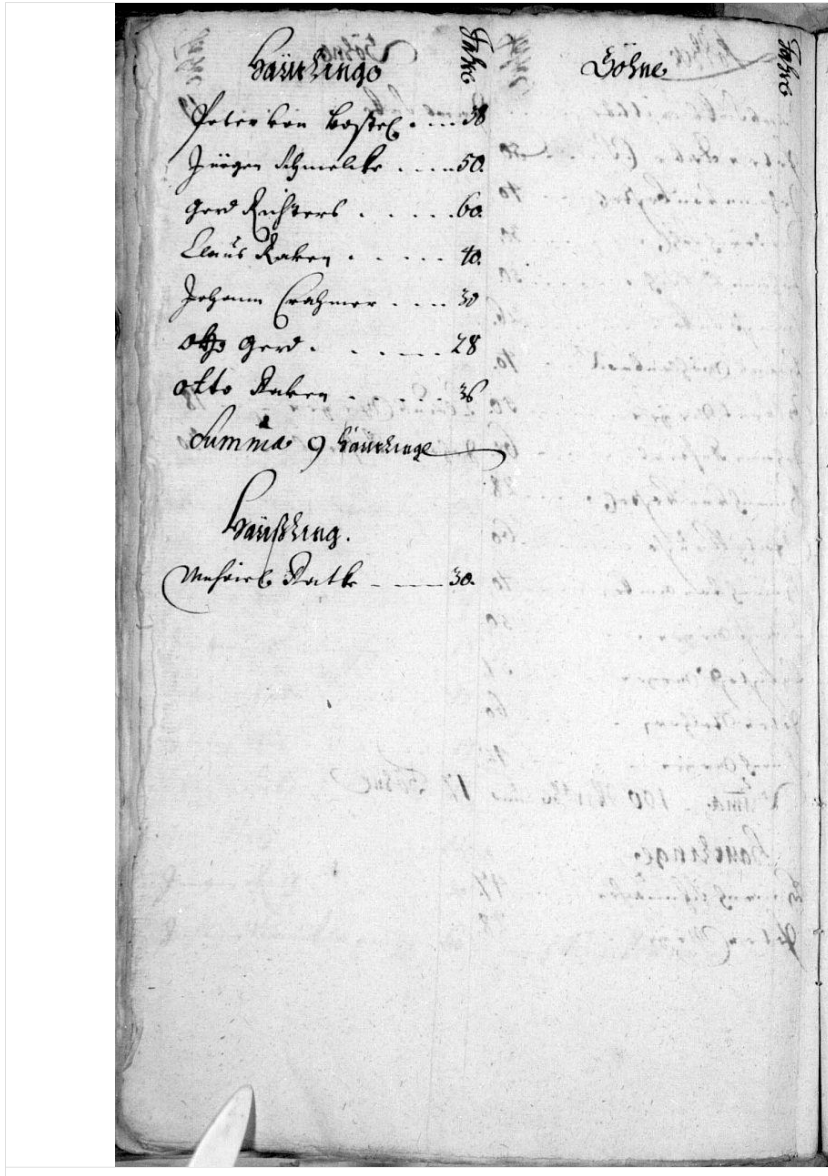 Häußlinge Jahre Söhne Jahre
Peter von Bostel . . . . 38
Jürgen Schmelcke . . . . 50.
Gerd Richters . . . . . 60.
Claus Raken . . . . . 40.
Johann Crahmer . . . . 30
Otto Gerd . . . . . 28
Otto Raken . . . . . 36
Summa 9 Häußlinge
Häußling.
Ratke - - - - 30.